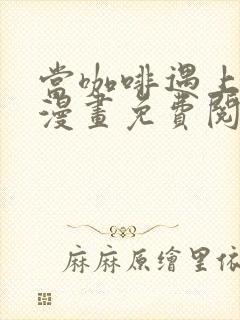 當咖啡遇上
漫畫免費閱
麻麻原繪里依